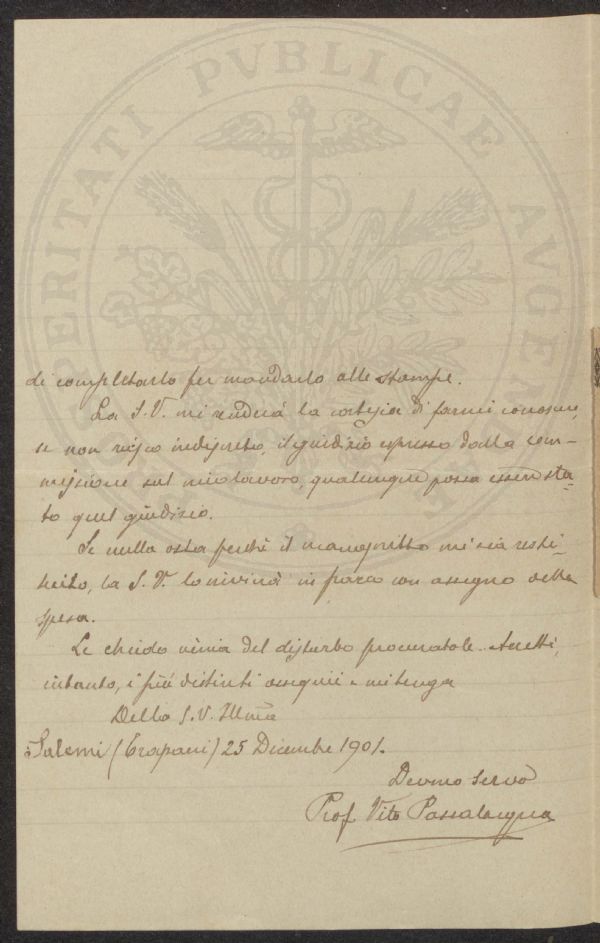 PROSPERITATI PVBLICAE AVGENDAE
di completarlo per mandarlo alle stampe.
La S.V. mi renderà la cortesia di farmi conoscere,
se non riesco indiscreto, il giudizio espresso dalla com-
missione sul mio lavoro, qualunque possa essere sta-
to quel giudizio.
Se nulla osta perchè il manoscritto mi sia resti-
tuito, la S.V. lo invierà in pacco con assegno della
spesa.
Le chiedo venia del disturbo procuratole. Accetti,
intanto, i più distinti ossequii e mi tenga
Della S.V. Illma
Salemi (Trapani) 25 Dicembre 1901.
Devmo servo
Prof. Vito Passalacqua